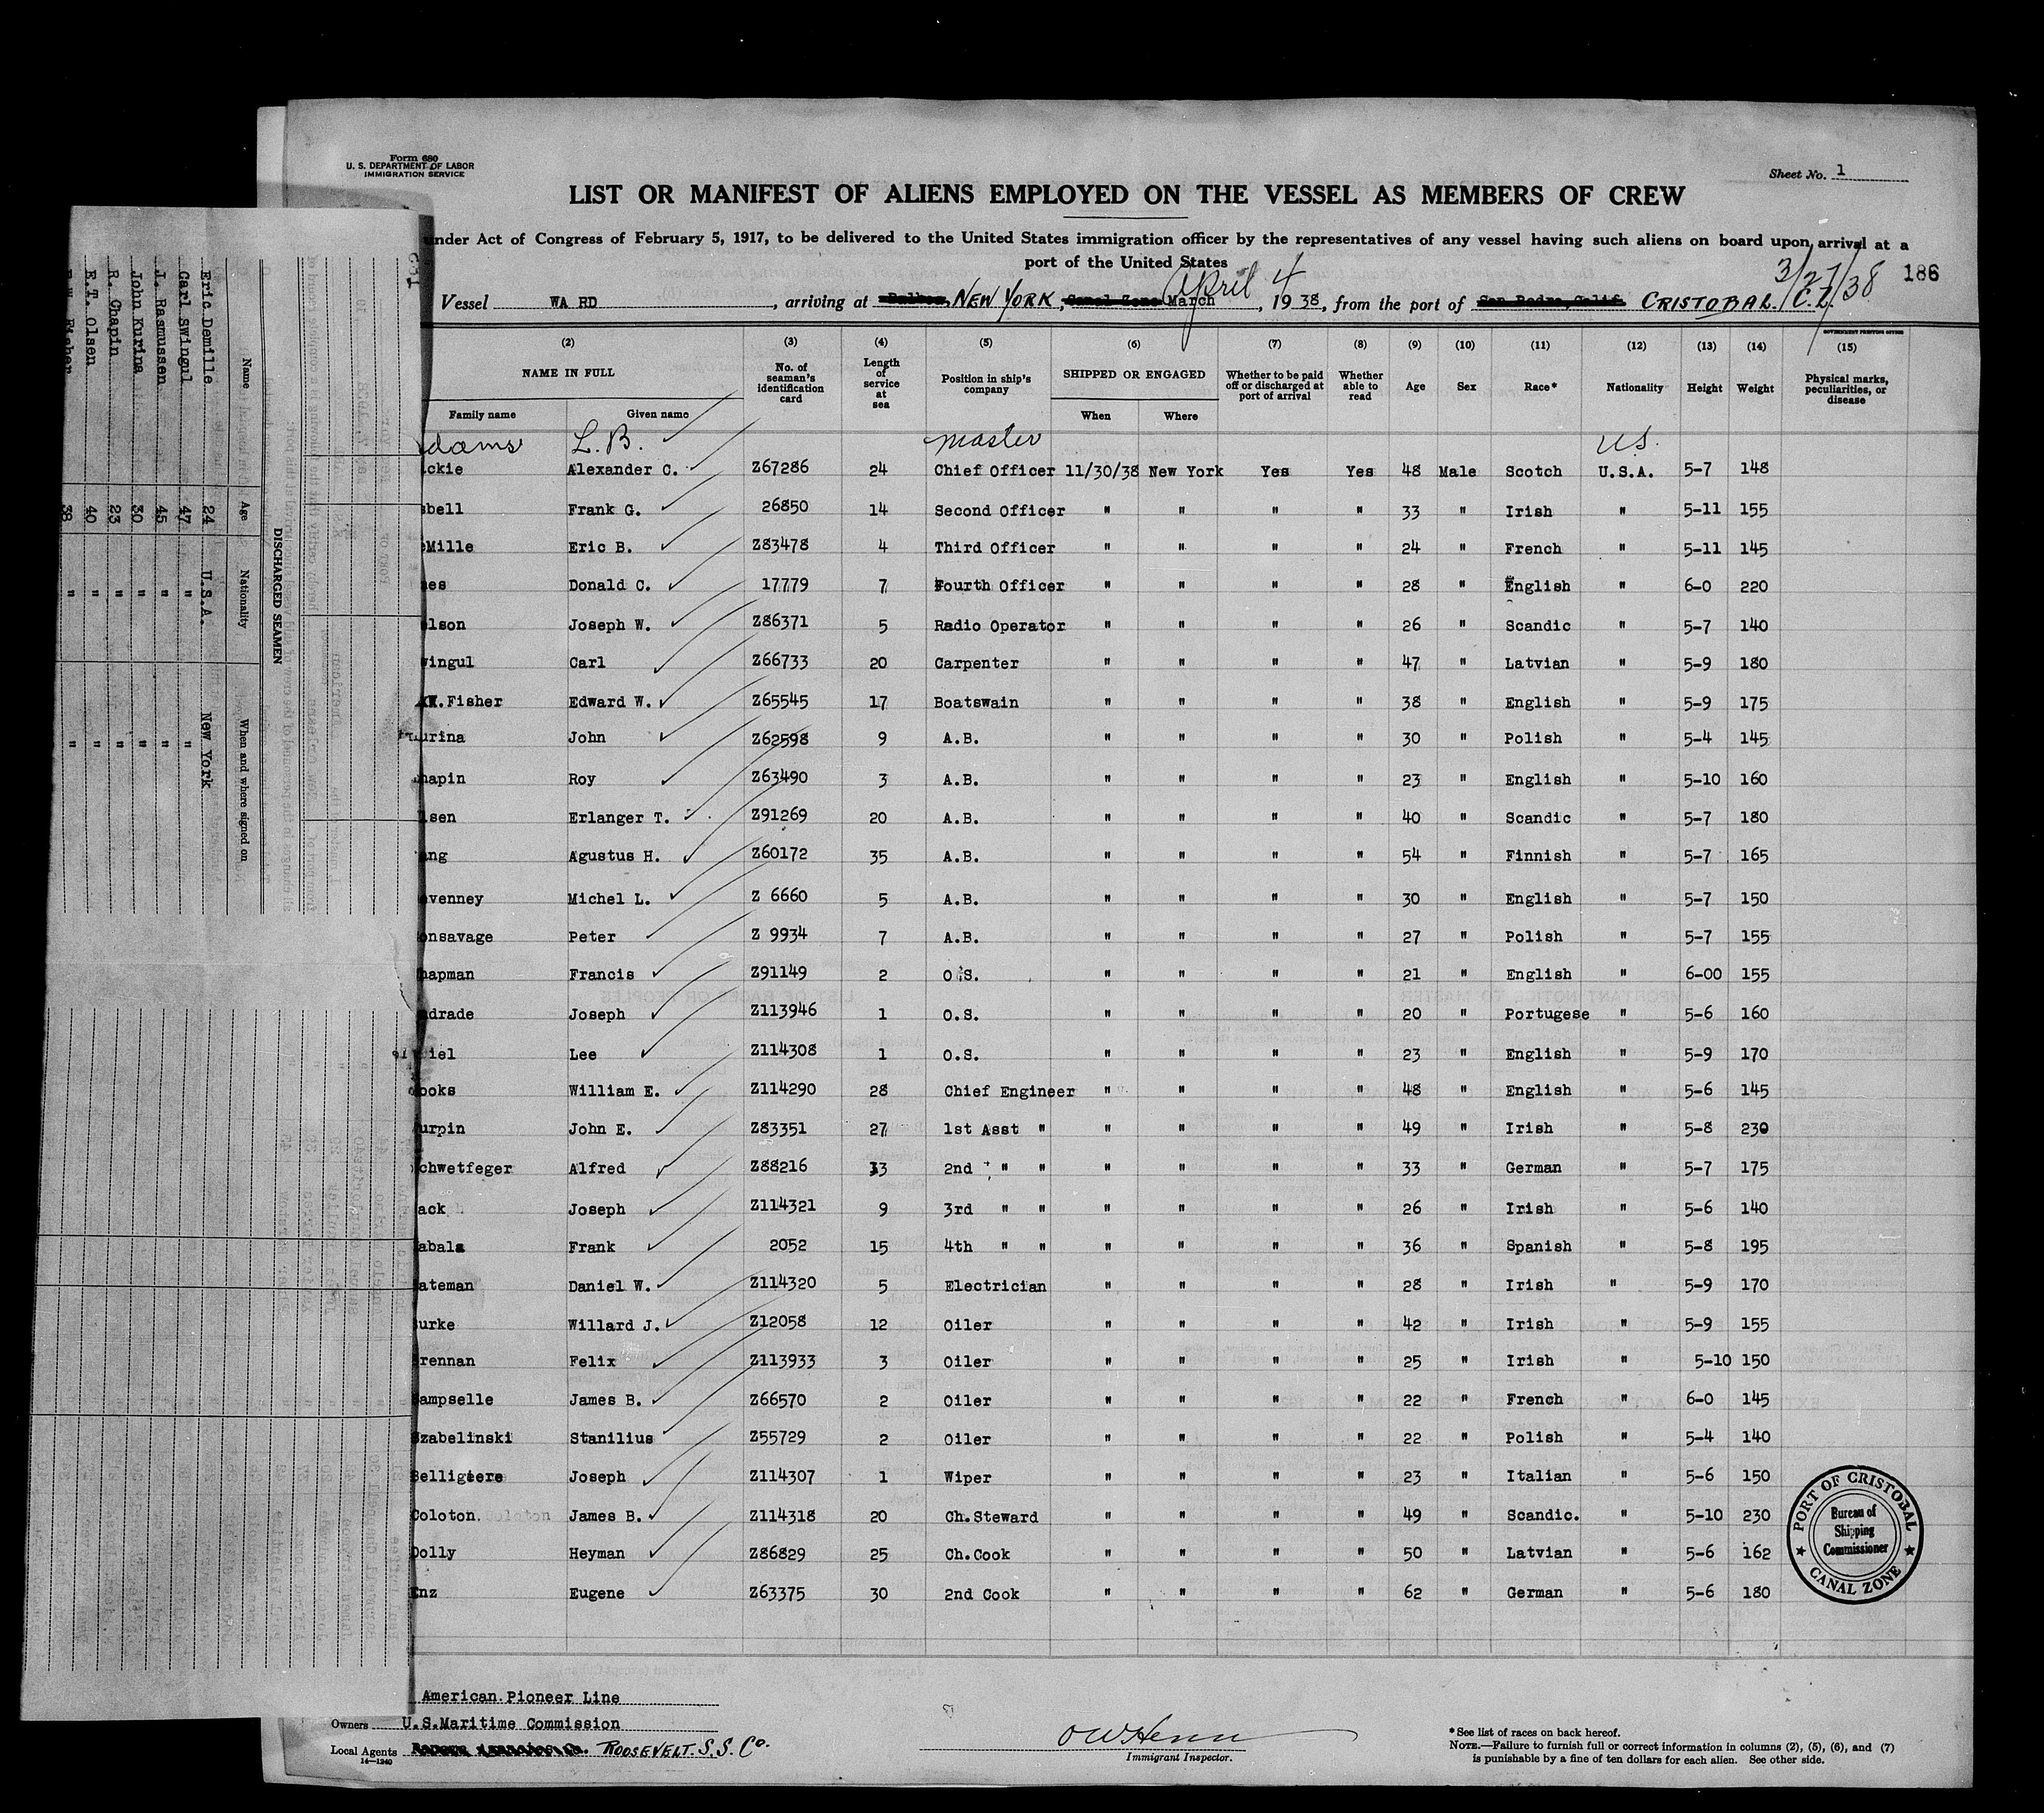 Form 680
U. S. DEPARTMENT OF LABOR
IMMIGRATION SERVICE
Sheet No. 1
LIST OR MANIFEST OF ALIENS EMPLOYED ON THE VESSEL AS MEMBERS OF CREW
under Act of Congress of February 5, 1917, to be delivered to the United States immigration officer by the representatives of any vessel having such aliens on board upon arrival at a
port of the United States
3/27/38 186
Vessel WARD, arriving at NEW YORK, Canal Zone March April 4, 1938, from the port of San Pedro, Calif. CRISTOBAL. C.Z.
GOVERNMENT PRINTING OFFICE
(2) (3) (4) (5) (6) (7) (8) (9) (10) (11) (12) (13) (14) (15)
NAME IN FULL No. of seaman's identification card Length of service at sea Position in ship's company SHIPPED OR ENGAGED Whether to be paid off or discharged at port of arrival Whether able to read Age Sex Race* Nationality Height Weight Physical marks, peculiarities, or disease
Family name Given name When Where
dams L.B. master U.S.
ckie Alexander C. Z67286 24 Chief Officer 11/30/38 New York Yes Yes 48 Male Scotch U.S.A. 5-7 148
bell Frank G. 26850 14 Second Officer " " " " 33 " Irish " 5-11 155
Mille Eric B. Z83478 4 Third Officer " " " " 24 " French " 5-11 145
es Donald C. 17779 7 Fourth Officer " " " " 28 " English " 6-0 220
lson Joseph W. Z86371 5 Radio Operator " " " " 26 " Scandic " 5-7 140
wingul Carl Z66733 20 Carpenter " " " " 47 " Latvian " 5-9 180
W.Fisher Edward W. Z65545 17 Boatswain " " " " 38 " English " 5-9 175
urina John Z62598 9 A.B. " " " " 30 " Polish " 5-4 145
hapin Roy Z63490 3 A.B. " " " " 23 " English " 5-10 160
lsen Erlanger T. Z91269 20 A.B. " " " " 40 " Scandic " 5-7 180
ang Agustus H. Z60172 35 A.B. " " " " 54 " Finnish " 5-7 165
venney Michel L. Z 6660 5 A.B. " " " " 30 " English " 5-7 150
onsavage Peter Z 9934 7 A.B. " " " " 27 " Polish " 5-7 155
hapman Francis Z91149 2 O.S. " " " " 21 " English " 6-00 155
drade Joseph Z113946 1 O.S. " " " " 20 " Portugese " 5-6 160
iel Lee Z114308 1 O.S. " " " " 23 " English " 5-9 170
ooks William E. Z114290 28 Chief Engineer " " " " 48 " English " 5-6 145
urpin John E. Z83351 27 1st Asst " " " " " 49 " Irish " 5-8 230
chwetfeger Alfred Z88216 13 2nd " " " " " " 33 " German " 5-7 175
ack Joseph Z114321 9 3rd " " " " " " 26 " Irish " 5-6 140
abala Frank 2052 15 4th " " " " " " 36 " Spanish " 5-8 195
ateman Daniel W. Z114320 5 Electrician " " " " 28 " Irish " 5-9 170
urke Willard J. Z12058 12 Oiler " " " " 42 " Irish " 5-9 155
rennan Felix Z113933 3 Oiler " " " " 25 " Irish " 5-10 150
ampselle James B. Z66570 2 Oiler " " " " 22 " French " 6-0 145
Szabelinski Stanilius Z55729 2 Oiler " " " " 22 " Polish " 5-4 140
Belligiere Joseph Z114307 1 Wiper " " " " 23 " Italian " 5-6 150
Coloton James B. Z114318 20 Ch.Steward " " " " 49 " Scandic. " 5-10 230
Dolly Heyman Z86829 25 Ch.Cook " " " " 50 " Latvian " 5-6 162
Enz Eugene Z63375 30 2nd Cook " " " " 62 " German " 5-6 180
PORT OF CRISTOBAL
Bureau of
Shipping
Commissioner
CANAL ZONE
American Pioneer Line
Owners U.S.Maritime Commission
Local Agents ROOSEVELT. S.S. Co.
14-1240
OWHenn
Immigrant Inspector.
*See list of races on back hereof.
NOTE.—Failure to furnish full or correct information in columns (2), (5), (6), and (7)
is punishable by a fine of ten dollars for each alien. See other side.
DISCHARGED SEAMEN
Name Age Nationality When and where signed on
Eric Demille 24 U.S.A. New York
Carl Swingul 47 " "
L. Rasmussen 45 " "
John Kurina 30 " "
R. Chapin 23 " "
E.T. Olsen 40 " "
E.W. Fisher 38 " "